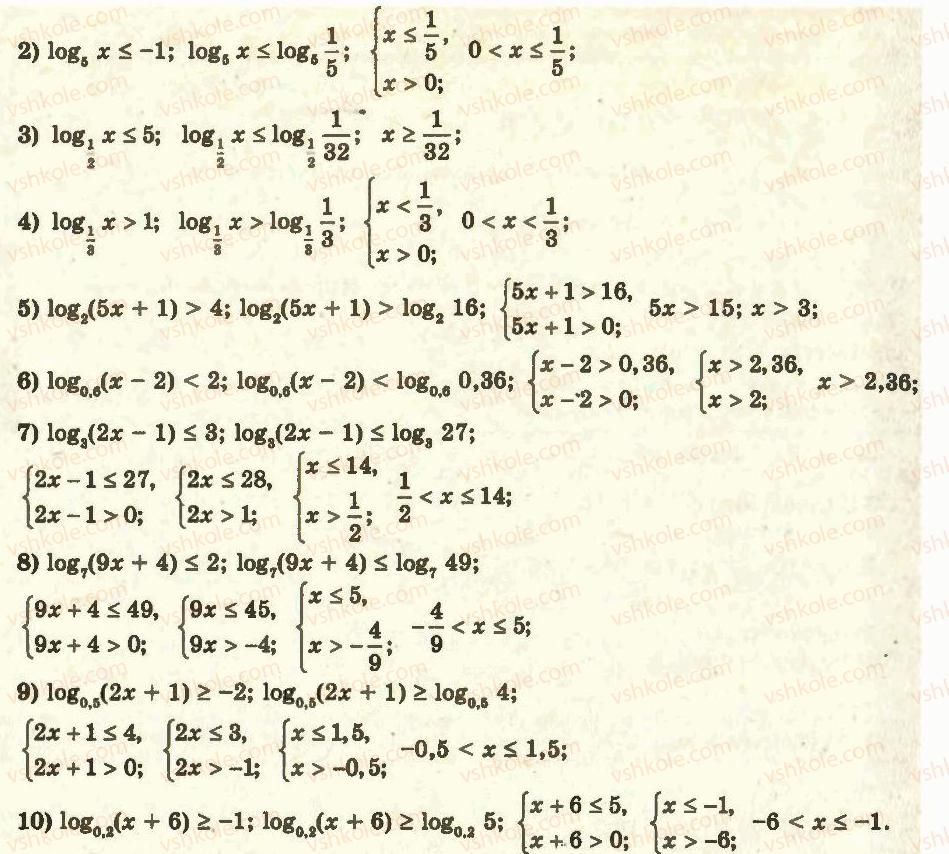 2) log₅ x ≤ −1; log₅ x ≤ log₅ 1/5; {x ≤ 1/5, x > 0; 0 < x ≤ 1/5;
3) log_{1/2} x ≤ 5; log_{1/2} x ≤ log_{1/2} 1/32; x ≥ 1/32;
4) log_{1/3} x > 1; log_{1/3} x > log_{1/3} 1/3; {x < 1/3, x > 0; 0 < x < 1/3;
5) log₂(5x + 1) > 4; log₂(5x + 1) > log₂ 16; {5x + 1 > 16, 5x + 1 > 0; 5x > 15; x > 3;
6) log₀,₆(x − 2) < 2; log₀,₆(x − 2) < log₀,₆ 0,36; {x − 2 > 0,36, x − 2 > 0; {x > 2,36, x > 2; x > 2,36;
7) log₃(2x − 1) ≤ 3; log₃(2x − 1) ≤ log₃ 27;
{2x − 1 ≤ 27, 2x − 1 > 0; {2x ≤ 28, 2x > 1; {x ≤ 14, x > 1/2; 1/2 < x ≤ 14;
8) log₇(9x + 4) ≤ 2; log₇(9x + 4) ≤ log₇ 49;
{9x + 4 ≤ 49, 9x + 4 > 0; {9x ≤ 45, 9x > −4; {x ≤ 5, x > −4/9; −4/9 < x ≤ 5;
9) log₀,₅(2x + 1) ≥ −2; log₀,₅(2x + 1) ≥ log₀,₅ 4;
{2x + 1 ≤ 4, 2x + 1 > 0; {2x ≤ 3, 2x > −1; {x ≤ 1,5, x > −0,5; −0,5 < x ≤ 1,5;
10) log₀,₂(x + 6) ≥ −1; log₀,₂(x + 6) ≥ log₀,₂ 5; {x + 6 ≤ 5, x + 6 > 0; {x ≤ −1, x > −6; −6 < x ≤ −1.
vshkole.com